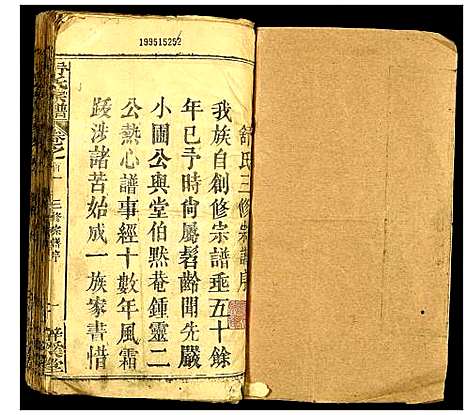 199515252
舒氏三修宗譜序
我族自創修宗譜垂五十餘
年已予時尙屬髫齡聞先嚴
小圃公與堂伯黙菴鍾靈二
公熱心譜事經十數年風霜
跋涉諸苦始成一族家書惜
舒氏宗譜
三修宗譜序
一